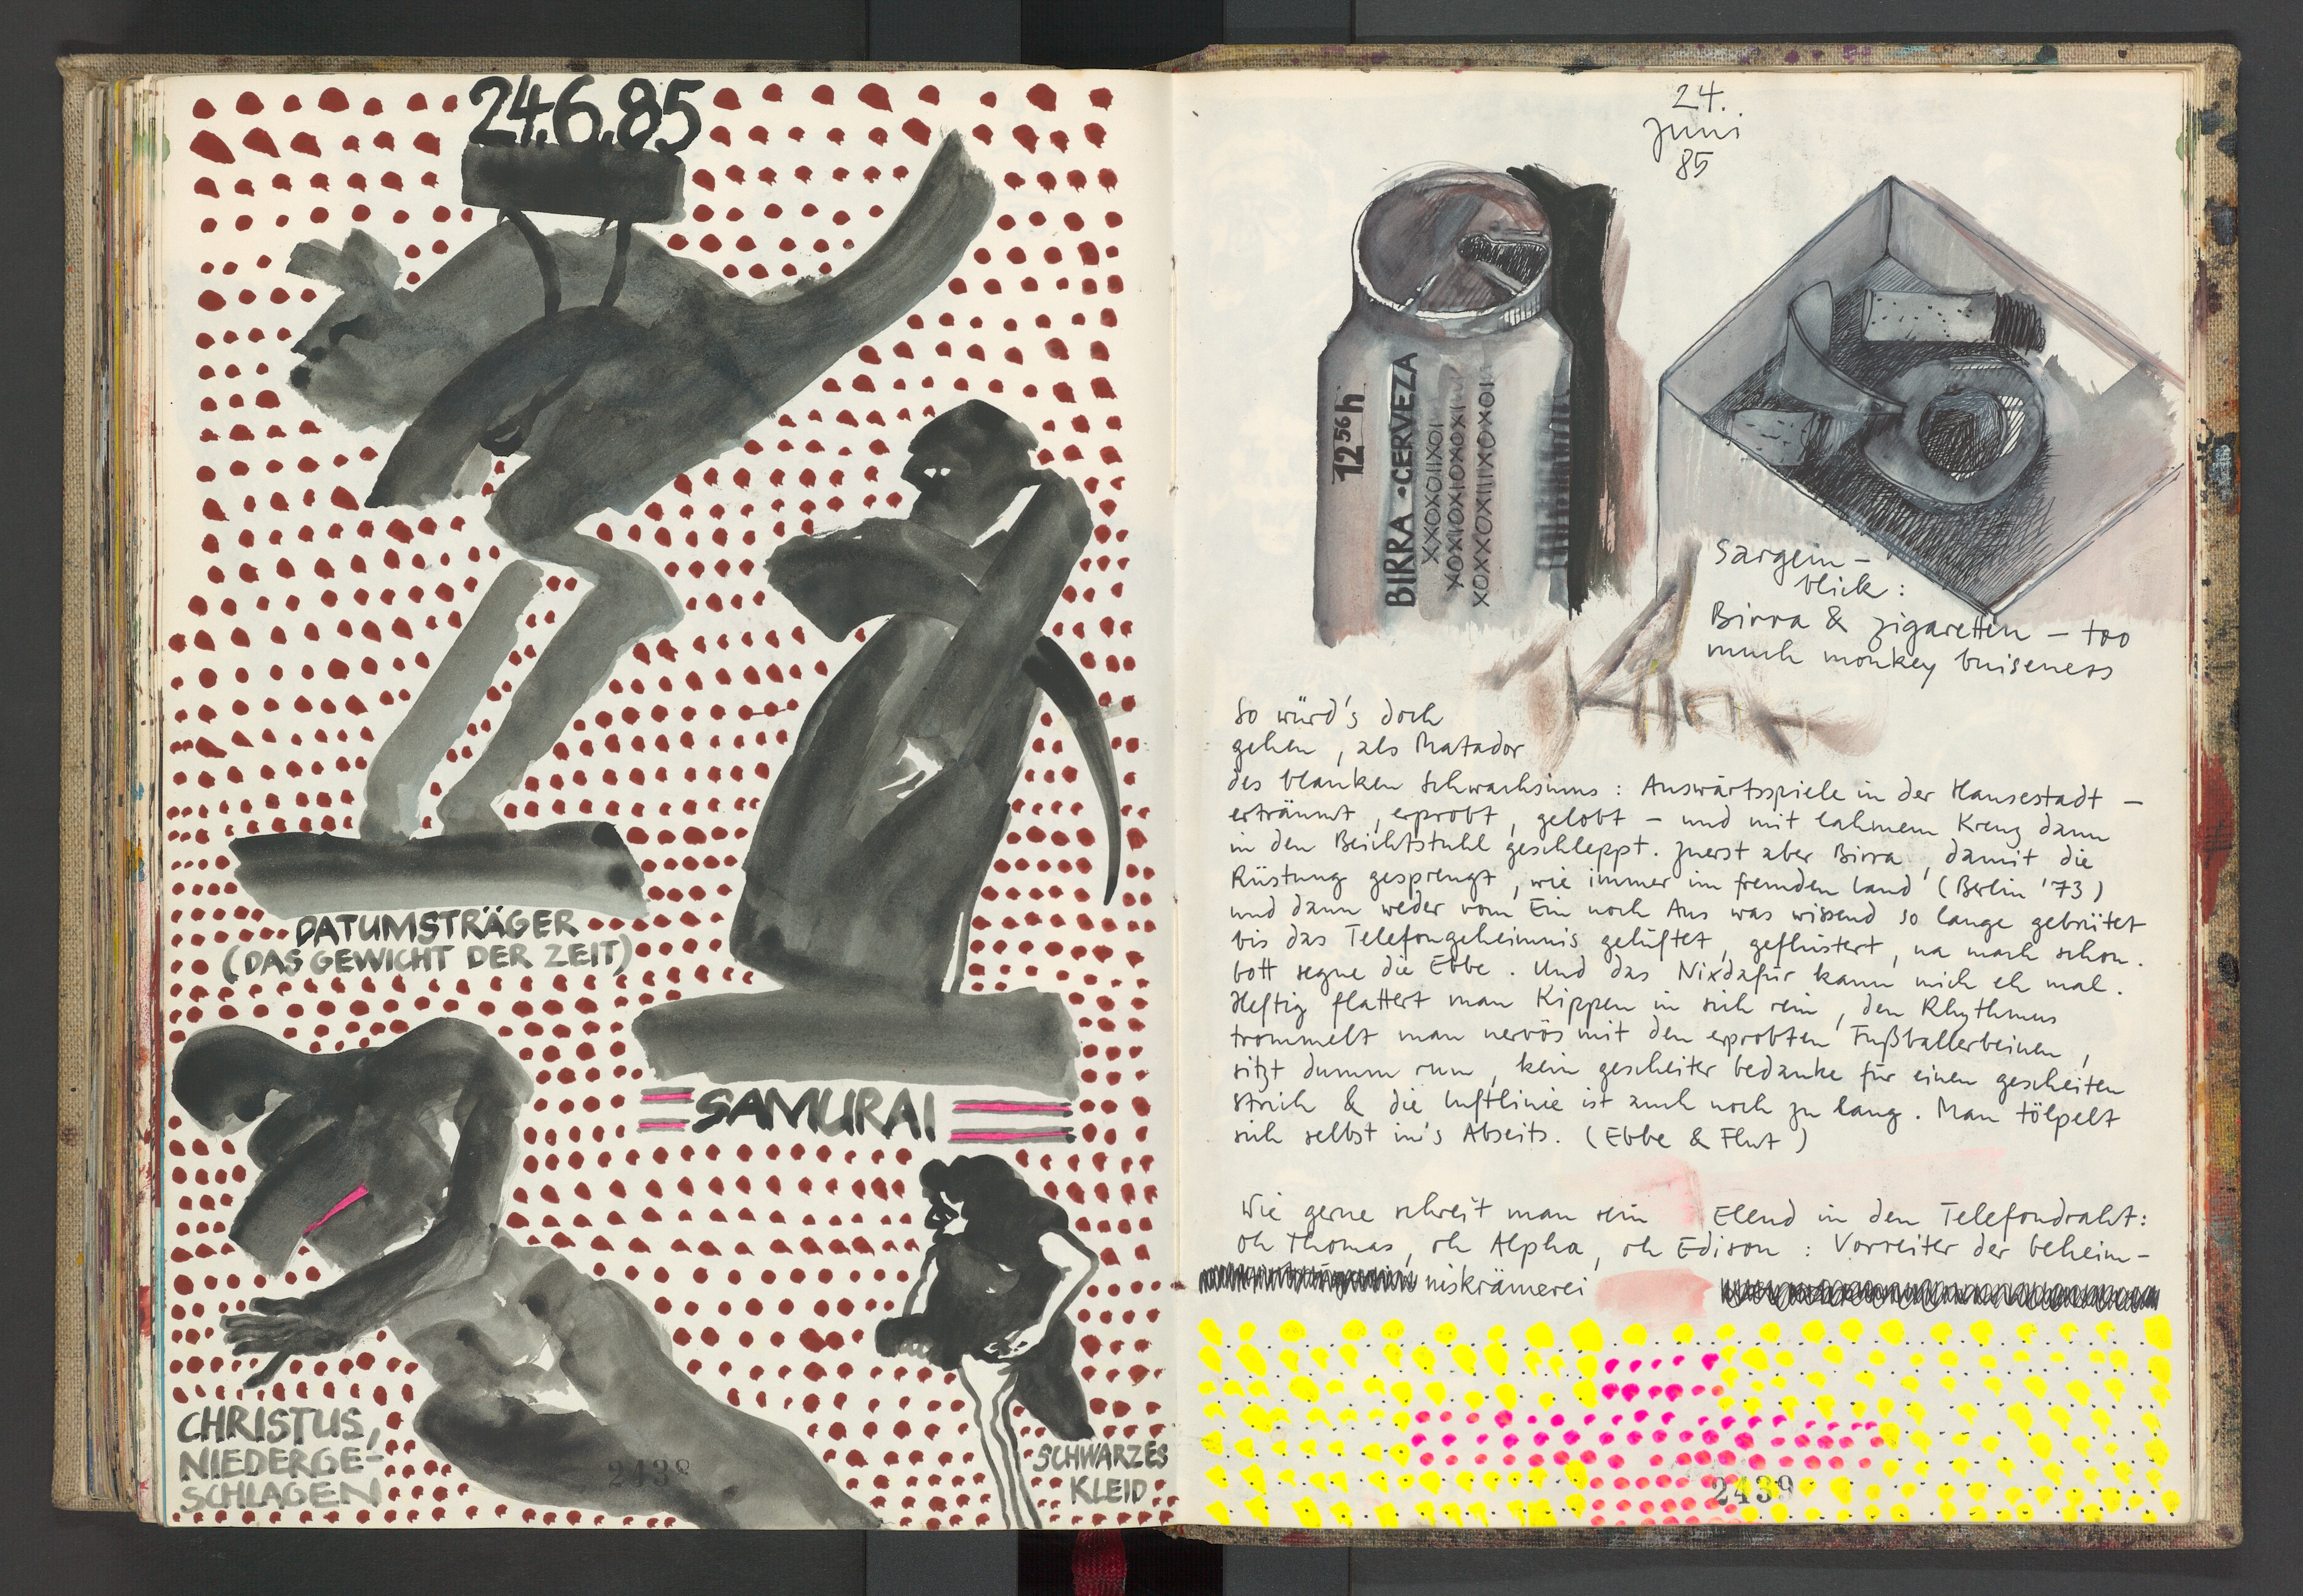 24.6.85
DATUMSTRÄGER
(DAS GEWICHT DER ZEIT)
SAMURAI
CHRISTUS,
NIEDERGE-
SCHLAGEN
SCHWARZES
KLEID
2438
24.
Juni
85
12 56 h
BIRRA • CERVEZA
XXOXOIIXOI
XOXIOXIOXOXI
XOXXOXIIIXOXOI
Sargein-
blick:
Birra & Zigaretten – too
much monkey buiseness
So würd's doch
gehen, als Matador
des blanken Schwachsinns: Auswärtsspiele in der Hansestadt –
erträumt, erprobt, gelobt – und mit lahmem Kreuz dann
in den Beichtstuhl geschleppt. Zuerst aber Birra, damit die
Rüstung gesprengt, wie immer im fremden Land (Berlin '73)
und dann weder vom Ein noch Aus was wissend so lange gebrütet
bis das Telefongeheimnis gelüftet, geflüstert, na mach schon.
Gott segne die Ebbe. Und das Nixdafür kann mich eh mal.
Heftig flattert man Kippen in sich rein, den Rhythmus
trommelt man nervös mit den erprobten Fußballerbeinen,
sitzt dumm rum, kein gescheiter Gedanke für einen gescheiten
Strich & die Luftlinie ist auch noch zu lang. Man tölpelt
sich selbst in's Abseits. (Ebbe & Flut)
Wie gerne schreit man sein Elend in den Telefondraht:
Oh Thomas, oh Alpha, oh Edison: Vorreiter der Geheim-
niskrämerei
2439